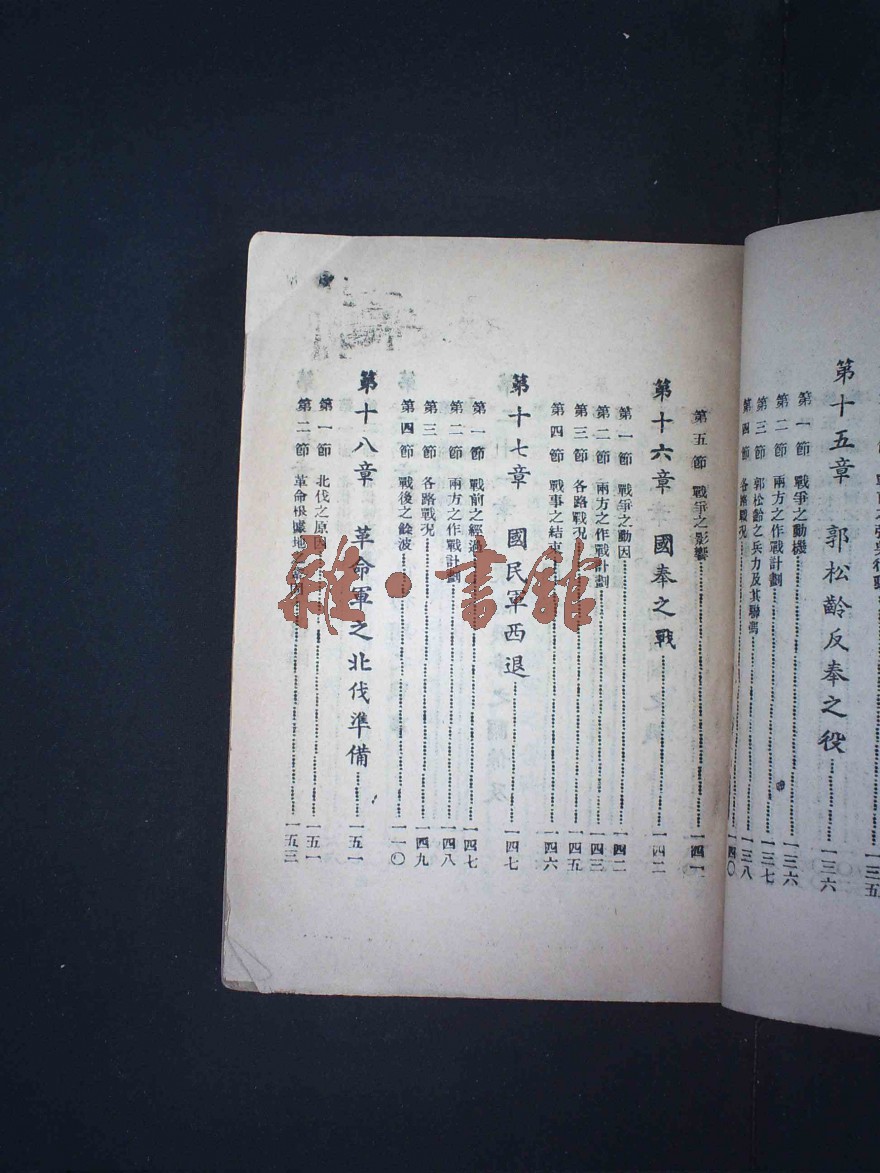 第十五章　郭松齡反奉之役……一三六
第一節　戰爭之動機……一三六
第二節　兩方之作戰計劃……一三七
第三節　郭松齡之兵力及其聯絡……一三八
第四節　各路戰況……一四〇
第五節　戰爭之影響……一四一
第十六章　國奉之戰……一四二
第一節　戰爭之動因……一四二
第二節　兩方之作戰計劃……一四三
第三節　各路戰況……一四五
第四節　戰事之結束……一四六
第十七章　國民軍西退……一四七
第一節　戰前之經過……一四七
第二節　兩方之作戰計劃……一四八
第三節　各路戰況……一四九
第四節　戰後之餘波……一一〇
第十八章　革命軍之北伐準備……一五一
第一節　北伐之原因……一五一
第二節　革命根據地……一五三
雜·書館